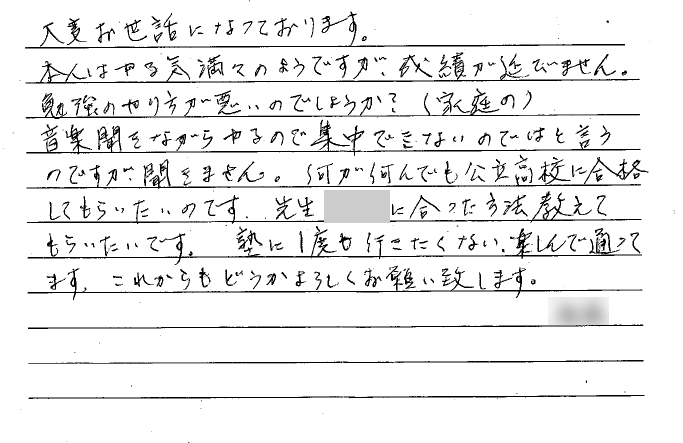 大変お世話になっております。
本人はやる気満々のようですが、成績が延びません。
勉強のやり方が悪いのでしょうか?(家庭の)
音楽聞きながらやるので集中できないのではと言う
のですが、聞きません。何が何んでも公立高校に合格
してもらいたいのです。先生 に合った方法教えて
もらいたいです。塾に1度も行きたくない、楽しんで通って
ます。これからもどうかよろしくお願い致します。